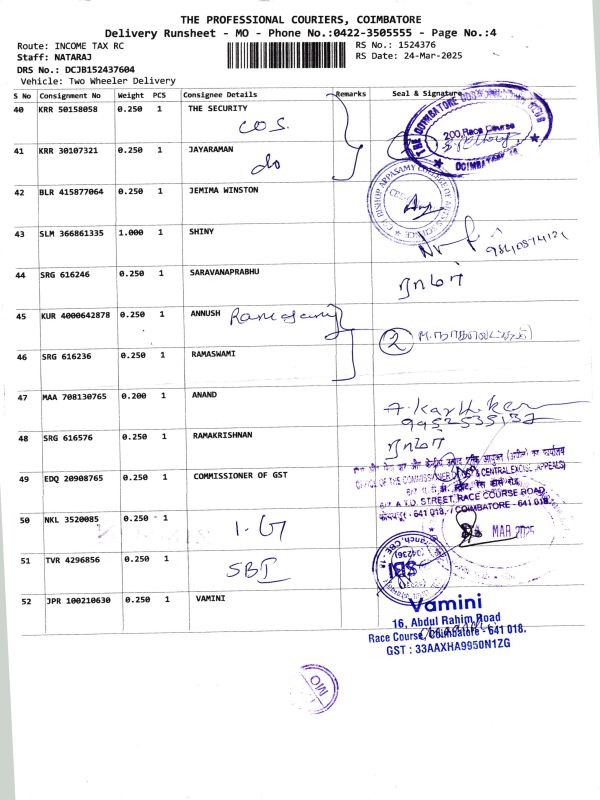 THE PROFESSIONAL COURIERS, COIMBATORE
Delivery Runsheet - MO - Phone No.:0422-3505555 - Page No.:4
Route: INCOME TAX RC
RS No.: 1524376
Staff: NATARAJ
RS Date: 24-Mar-2025
DRS No.: DCJB152437604
Vehicle: Two Wheeler Delivery
S No Consignment No Weight PCS Consignee Details Remarks Seal & Signature
40 KRR 50158058 0.250 1 THE SECURITY
COS.
200, Race Course
41 KRR 30107321 0.250 1 JAYARAMAN
do
42 BLR 415877064 0.250 1 JEMIMA WINSTON
43 SLM 366861335 1.000 1 SHINY
44 SRG 616246 0.250 1 SARAVANAPRABHU
45 KUR 4000642878 0.250 1 ANNUSH
2
46 SRG 616236 0.250 1 RAMASWAMI
47 MAA 708130765 0.200 1 ANAND
A. Karthikeyan
9952535132
48 SRG 616576 0.250 1 RAMAKRISHNAN
49 EDQ 20908765 0.250 1 COMMISSIONER OF GST
OFFICE OF THE COMMISSIONER OF GST & CENTRAL EXCISE (APPEALS)
6/7 A.T.D. STREET, RACE COURSE ROAD,
कोयम्पूर - 641 018. / COIMBATORE - 641 018.
50 NKL 3520085 0.250 1
I.G
MAR 2025
51 TVR 4296856 0.250 1
SBI
SBI
52 JPR 100210630 0.250 1 VAMINI
Vamini
16, Abdul Rahim Road
Race Course, Coimbatore - 641 018.
GST : 33AAXHA9950N1ZG
MO